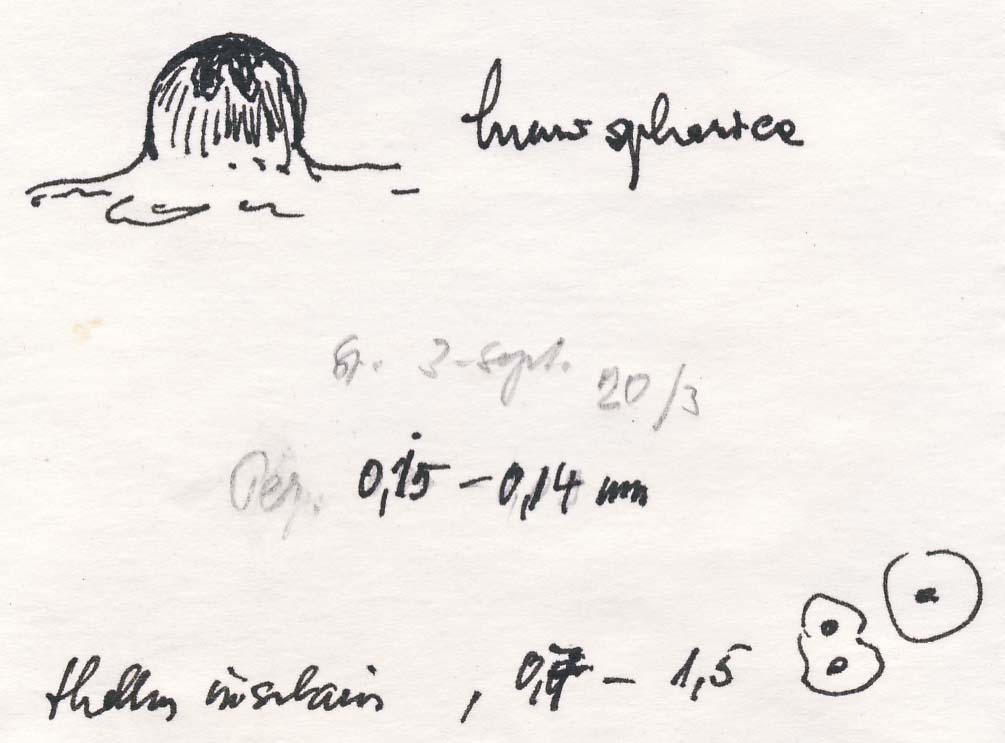 hemispherica
3-sept.
20/3
Per. 0,15 – 0,14 mm
thallus insularis, 0, – 1,5